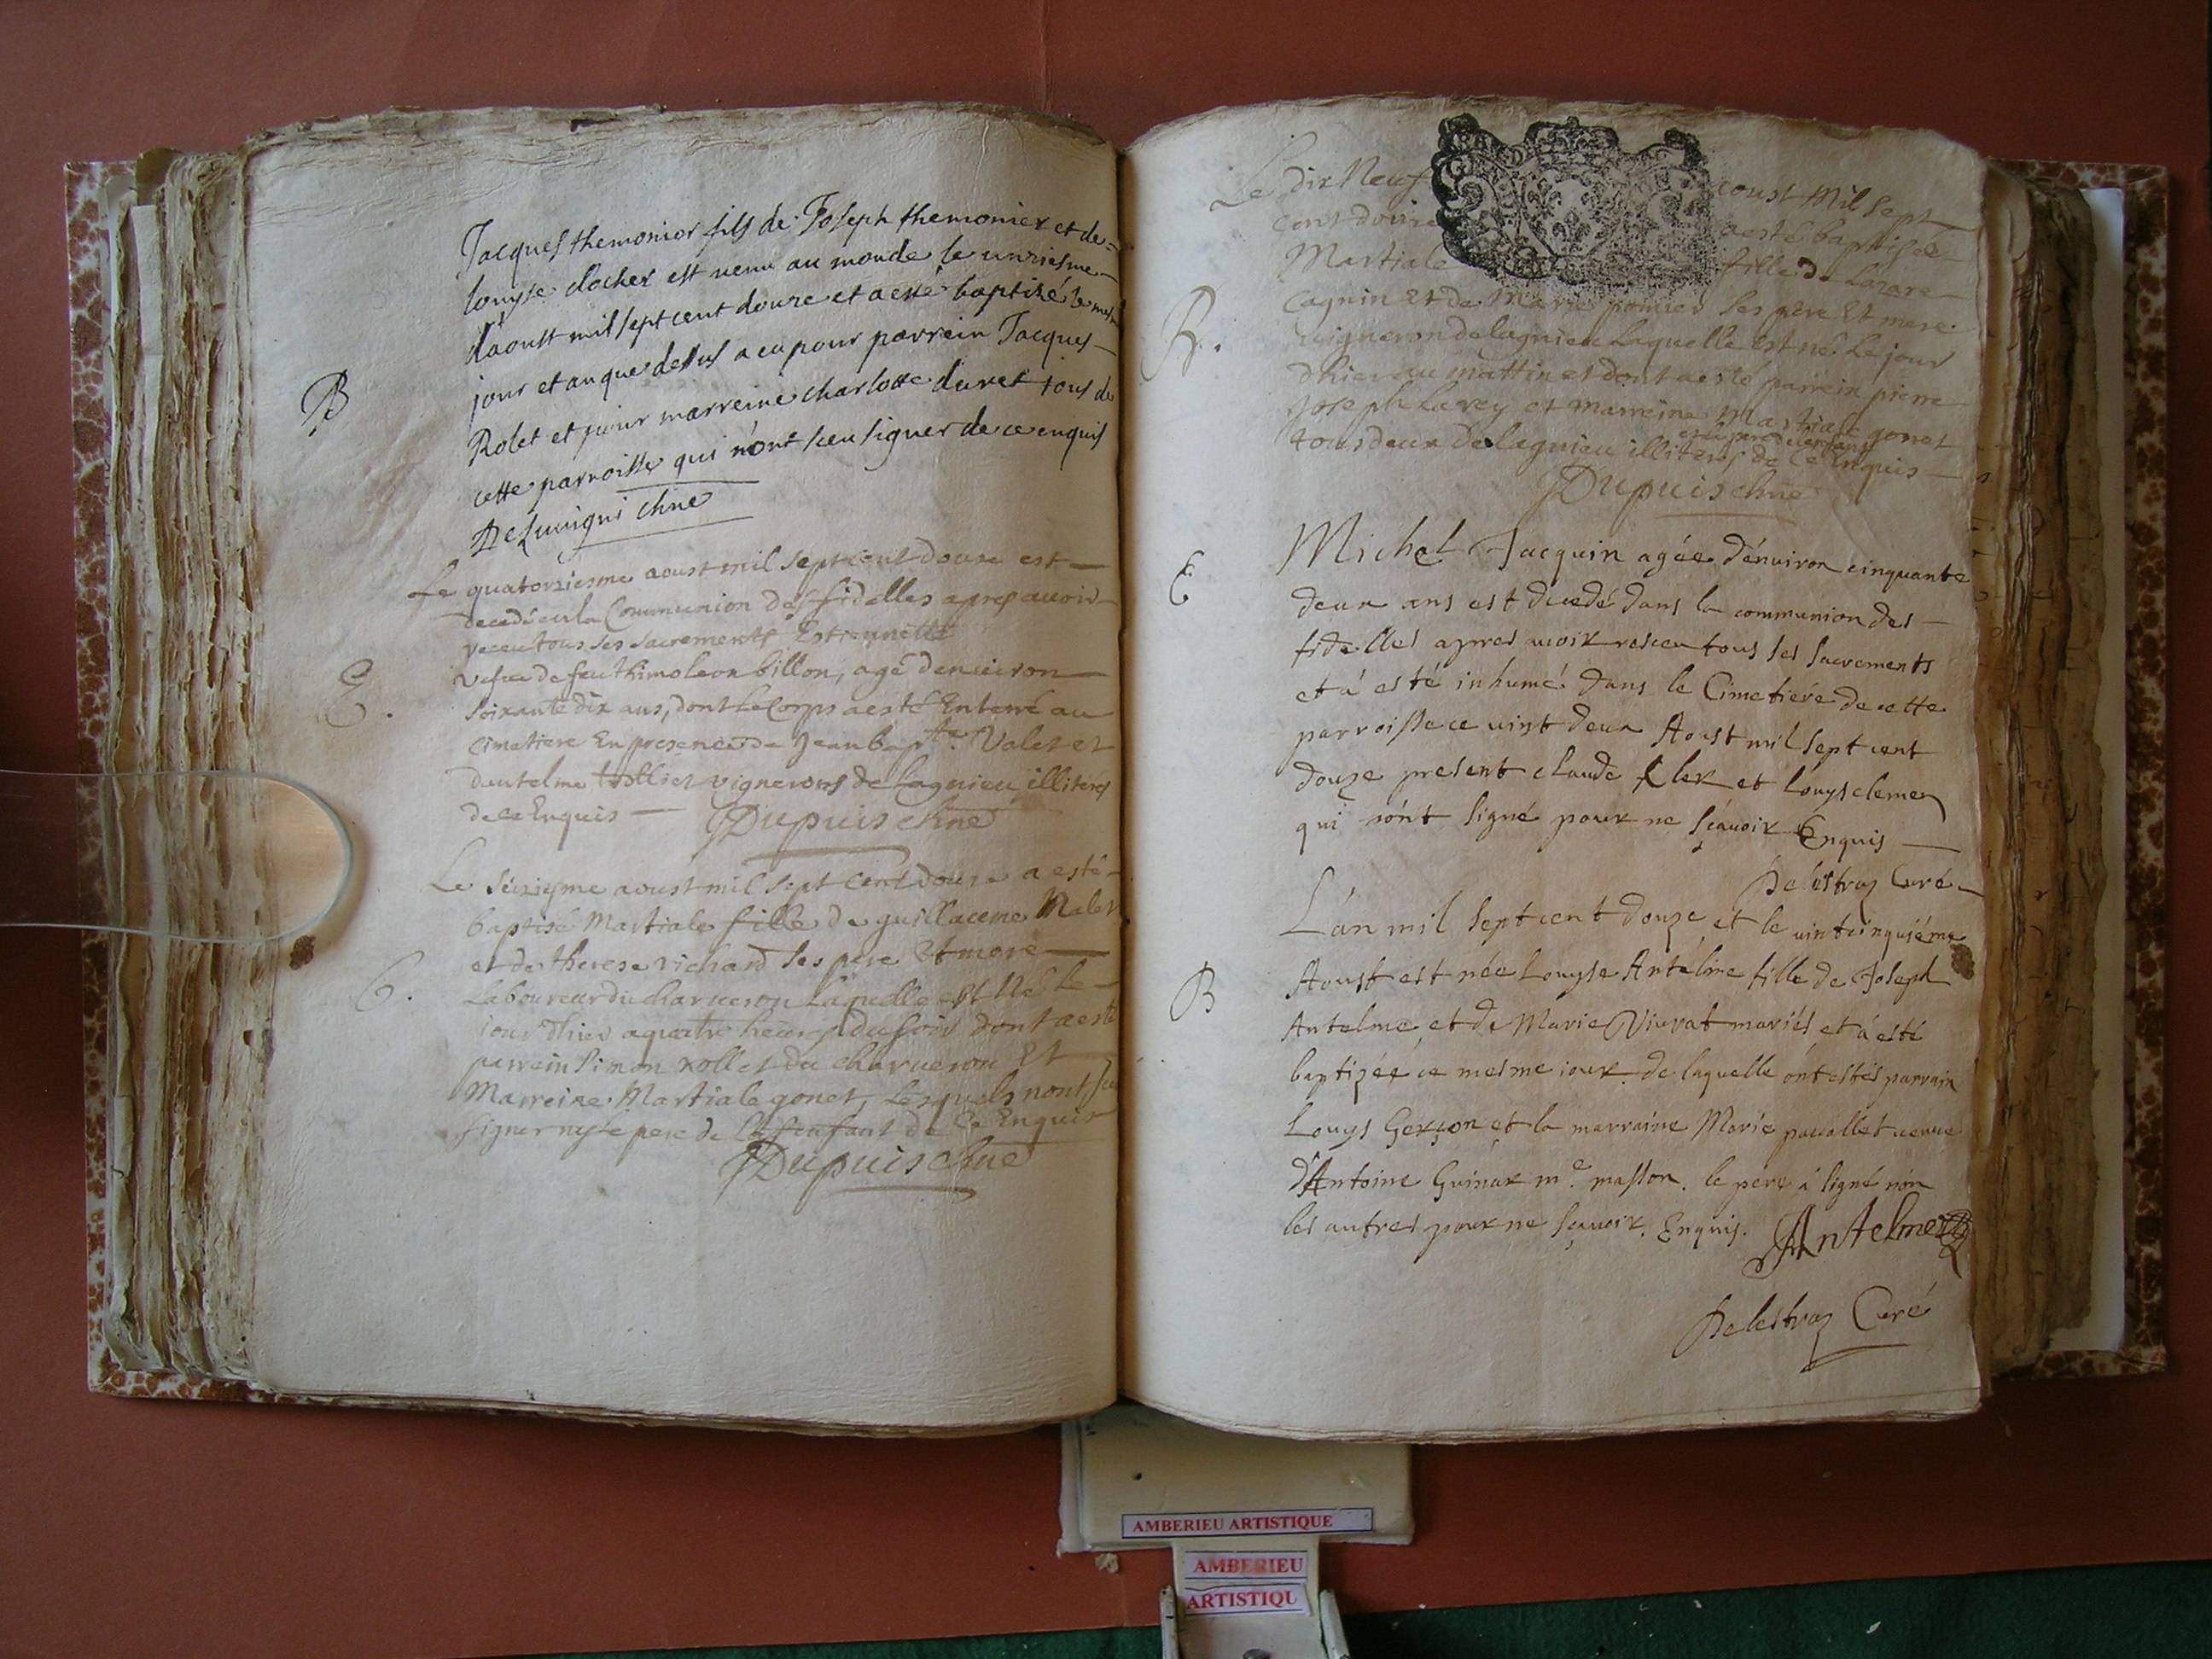 Jacques themonier fils de Joseph themonier et de
louyse clocher est venu au monde le unziesme
daoust mil sept cent douze et a esté baptizé le mesme
jour et an que dessus a eu pour parrein Jacques
B
Rolet et pour marreine charlotte duret tous de
cette parroisse qui n'ont sceu signer de ce enquis
chne
Le quatorziesme aoust mil sept cent douze est
decedé en la Communion des fidelles apres avoir
receu tous ses sacrements Estiennette
vefve de feu thimoleon billon, agé denviron
E.
soixante dix ans, dont le Corps a esté Enterré au
Cimetiere En presence de Jean bapte Valet et
dantelme vignerons de Lagnieu illiterés
de ce Enquis
Dupuis chne
Le seiziesme aoust mil sept cent douze a esté
baptisé Martiale fille de guillaume
et de therese richard ses pere Et mere
B.
Laboureur du charveron Laquelle est Née le
iour d'hier a quatre heures du soir dont a esté
parrein Simon rollet du charveron Et
Marreine Martiale gonet, Lesquels nont sceu
signer ny le pere de enfant de Ce Enquis
Dupuis chne
Le dix Neuf aoust Mil sept
cent douze a esté baptisée
Martiale fille de Lazare
Cagnin Et de Marie ses pere Et mere
B.
vigneron de lagnieu Laquelle est née Le jour
d'hier au mattin et dont a esté parrein pierre
Joseph Larey et marreine Martiale gonet
tous deux De lagnieu illiterés de Ce Enquis
Dupuis chne
Michel Jacquin agée d'environ cinquante
E
deux ans est decedé dans la communion des
fidelles apres avoir resceu tous ses sacrements
et a esté inhumé dans le Cimetiére de cette
parroisse ce vint deux Aoust mil sept cent
douze present claude et Louys clemen
qui n'ont signé pour ne sçavoir Enquis
Delestraz Curé
L'an mil sept cent douze et le vintcinquiéme
B
Aoust est née Louyse Antelme fille de Joseph
Antelme et de Marie Vivrat mariés et a esté
baptizée ce mesme iour. de laquelle ont estés parrain
Louys Gerson et la marraine Marie pavallet veuve
d'Antoine Guinar me masson. le pere a signé non
les autres pour ne sçavoir. Enquis.
Antelme
Delestraz Curé
AMBERIEU ARTISTIQUE
AMBERIEU
ARTISTIQU